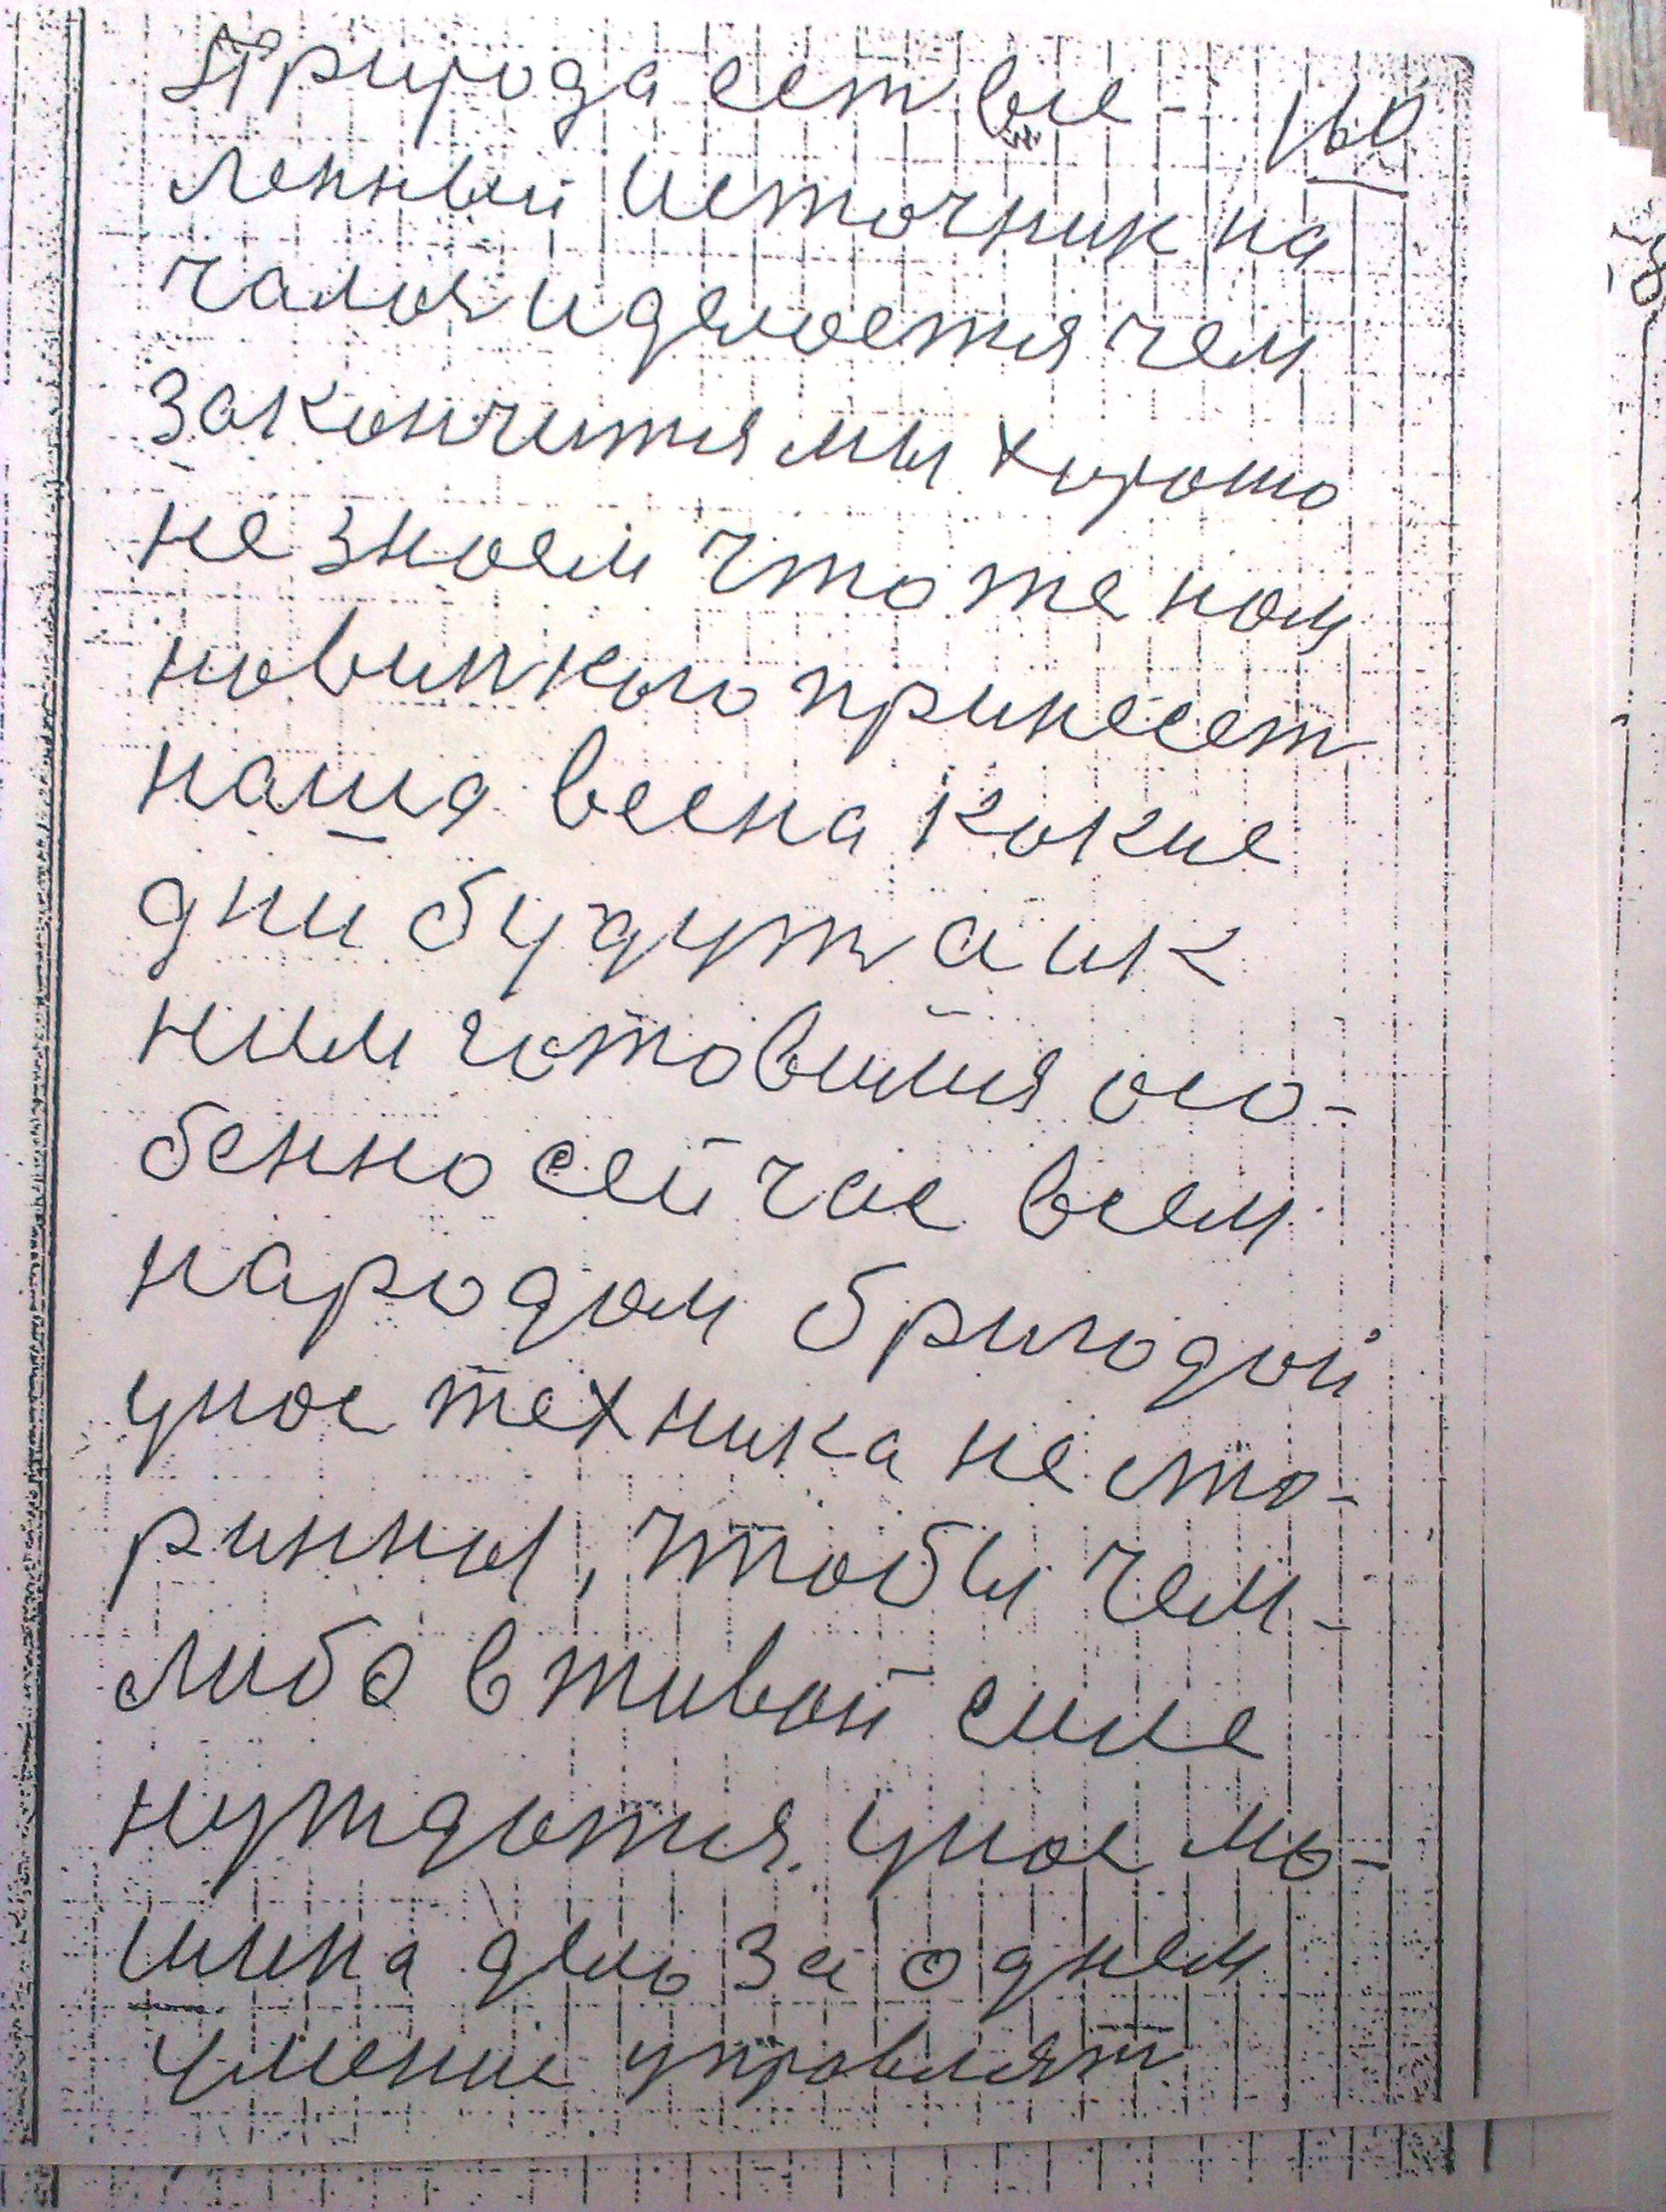 Природа есть все-
160
ленный источник на
чался и делается чем
закончится мы хорошо
не знаем что же нам
новинкою принесет
наша весна какие
дни будут а и к
ним готовимся осо-
бенно сейчас всем
народом бригадой
у нас техника не сто-
ринны, чтобы чем-
либо в живой силе
нуждатся. У нас мо-
шина дело за однем
умение управлят